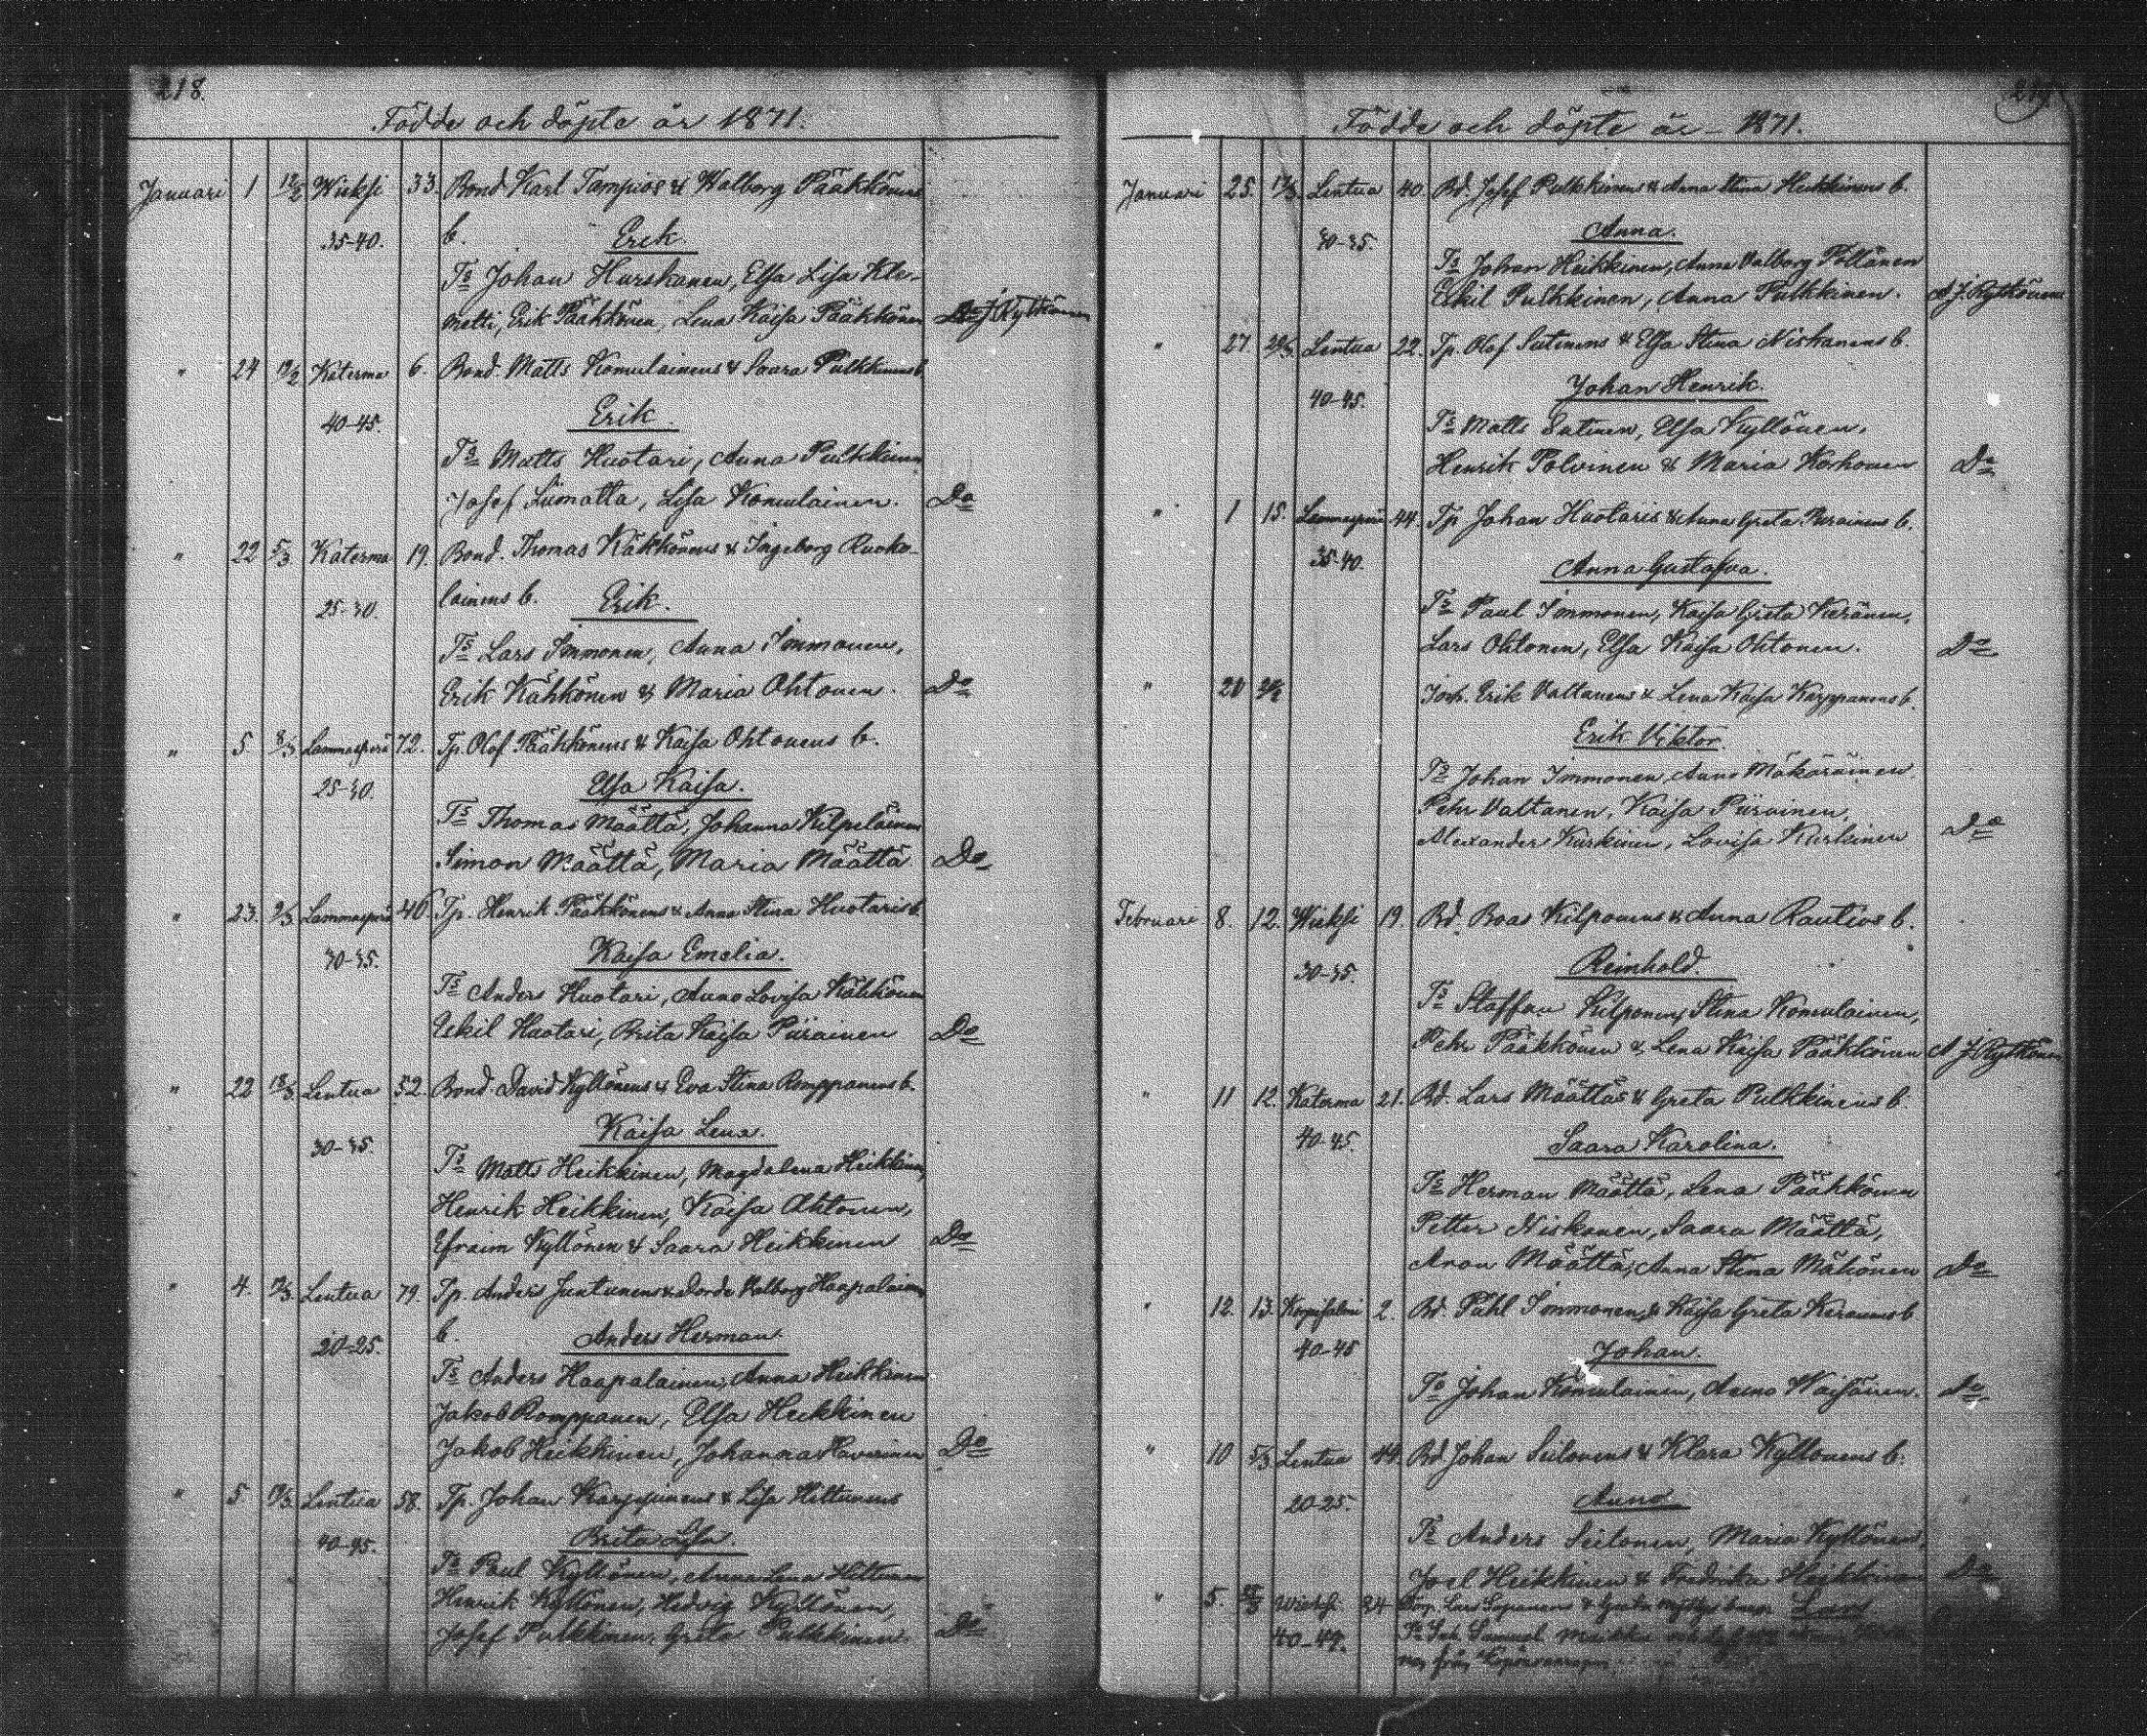 218.
Födde och döpte år 1871.
Januari 1 12/2 Wieksi 33. Bond. Karl Tampios & Walborg Pääkkönens
35-40. b. Erik.
Ts Johan Hurskanen, Elsa Lisa Kle-
metti, Erik Pääkkönen, Lena Kaisa Pääkkönen A. J. Rytkönen
" 24 19/2 Katerma 6. Bond. Matts Komulainens & Saara Pulkkinens b.
40-45. Erik.
Ts Matts Huotari, Anna Pulkkinen
Josef Liimatta, Lisa Komulainen. Do
" 22 5/3 Katerma 19. Bond. Thomas Käkkönens & Ingeborg Ruoko-
25-30. lainens b. Erik.
Ts Lars Immonen, Anna Immonen,
Erik Kähkönen & Maria Ohtonen. Do
" 5 8/3 Lammasperä 72. Tp. Olof Pääkkönens & Kaisa Ohtonens b.
25-30. Elsa Kaisa.
Ts Thomas Määttä, Johanna Kilpeläinen
Simon Määttä, Maria Määttä Do
" 23. 9/3 Lammasperä 46 Tp. Henrik Pääkkönens & Anna Stina Huotaris b.
30-35. Kaisa Emelia.
Ts Anders Huotari, Anna Lovisa Käkkönen
Eskil Huotari, Brita Kaisa Piirainen Do
" 22 18/3 Lentua 52. Bond. David Kyllönens & Eva Stina Romppanens b.
30-35. Kaisa Lena.
Ts Matts Heikkinen, Magdalena Heikkinen,
Henrik Heikkinen, Kaisa Ohtonen,
Efraim Kyllönen & Saara Heikkinen Do
" 4. 19/3 Lentua 79. Tp. Anders Juntunens & Dorde Valborg Haapalainens
20-25. b. Anders Herman.
Ts Anders Haapalainen, Anna Heikkinen
Jakob Romppanen, Elsa Heikkinen
Jakob Heikkinen, Johanna Haverinen Do
" 5 19/3 Lentua 58. Tp. Johan Karppinens & Lisa Hiltunens
40-45. Brita Lisa.
Ts Paul Kyllönen, Anna Lena Hiltunen
Henrik Kyllönen, Hedvig Kyllönen,
Josef Pulkkinen, Greta Pulkkinen. Do
219.
Födde och döpte år 1871.
Januari 25. 19/3. Lentua 40. Bd. Josef Pulkkinens & Anna Stina Heikkinens b.
30-35. Anna.
Ts Johan Heikkinen, Anna Valborg Pöllänen
Eskil Pulkkinen, Anna Pulkkinen. A. J. Rytkönen
" 27. Lentua 22. Tp. Olof Sutinens & Elsa Stina Niskanens b.
40-45. Johan Henrik.
Ts Matts Sutinen, Elsa Kyllönen,
Henrik Polvinen & Maria Korhonen Do
" 1 15. Lammasperä 44. Tp Johan Huotaris & Anna Greta Piirainens b.
35-40. Anna Gustafva.
Ts Paul Immonen, Kaisa Greta Keränen,
Lars Ohtonen, Elsa Kaisa Ohtonen. Do
" 20 Erik Valtanens & Lena Kaisa Karppanens b.
Erik Viktor.
Ts Johan Immonen, Anna Mäkäräinen
Pehr Valtanen, Kaisa Piirainen,
Alexander Kurkinen, Lovisa Kurkinen Do
Februari 8. 12. Wieksi 19. Bd. Boas Kilponens & Anna Rautios b.
30-35. Reinhold.
Ts Staffan Kilponen, Stina Komulainen,
Pehr Pääkkönen & Lena Kaisa Pääkkönen A. J. Rytkönen
" 11 12. Katerma 21. Bd. Lars Määttäs & Greta Pulkkinens b.
40-45. Saara Karolina.
Ts Herman Määttä, Lena Pääkkönen
Petter Niskanen, Saara Määttä,
Aron Määttä, Anna Stina Mähönen Do
" 12. 13. Korpisalmi 2. Bd. Påhl Immonens & Kaisa Greta Keränens b
40-45 Johan.
Ts Johan Komulainen, Anna Waisänen. Do
" 10 5/3 Lentua 44. Bd. Johan Seilonens & Klara Kyllönens b.
20-25. Anna
Ts Anders Seilonen, Maria Kyllönen,
Joel Heikkinen & Fredrika Heikkinen Do
" 5. Wieksi 24 Lars &
40-49. Ts Joh. Samuel
från